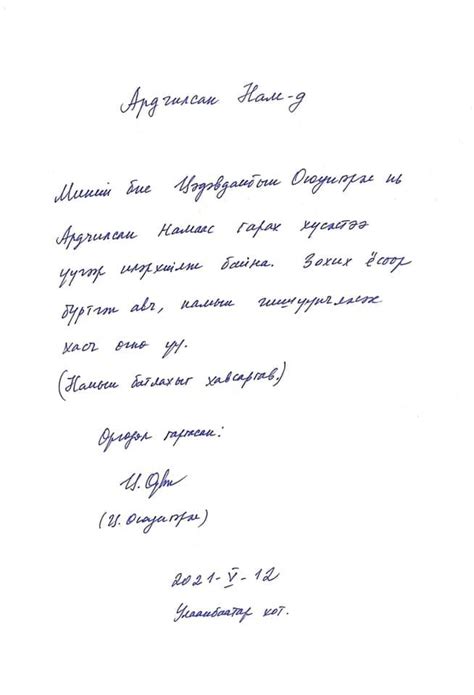 Ардчилсан Нам-д
Миний бие Цэдэвдамбын Оюунгэрэл нь
Ардчилсан Намаас гарах хүсэлтээ
үүгээр илэрхийлж байна. Зохих ёсоор
бүртгэж авч, намын гишүүнчлэлээс
хасч өгнө үү.
(Намын батлахыг хавсаргав.)
Өргөдөл гаргасан:
(Ц. Оюунгэрэл)
2021-V-12
Улаанбаатар хот.